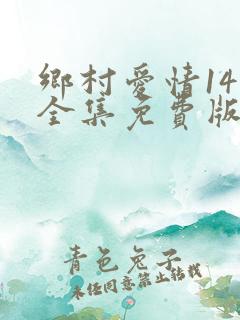 鄉村愛情14
全集免費版
青色兔子
未任同意禁止转载